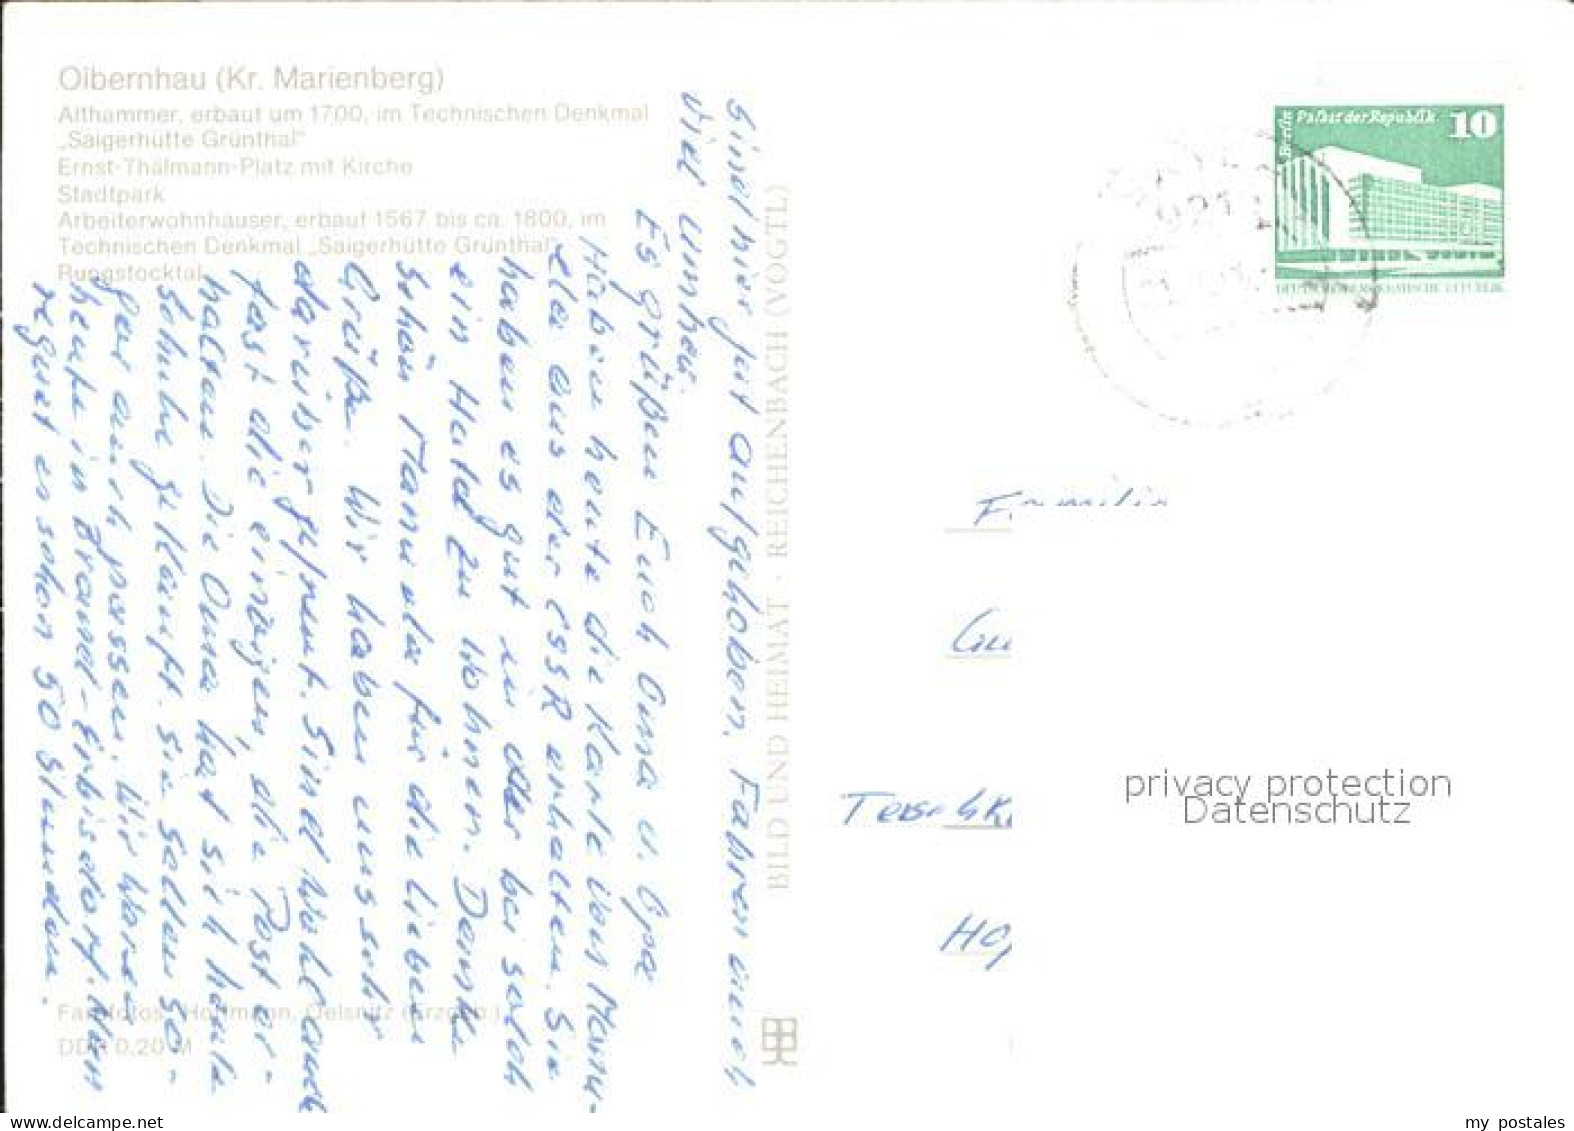 Olbernhau (Kr. Marienberg)
Althammer, erbaut um 1700, im Technischen Denkmal
„Saigerhütte Grünthal“
Ernst-Thälmann-Platz mit Kirche
Stadtpark
Arbeiterwohnhäuser, erbaut 1567 bis ca. 1800, im
Technischen Denkmal „Saigerhütte Grünthal“
Rungstocktal
Sind hier gut aufgehoben. Fahren auch
viel umher.
Es grüßen Euch Oma u. Opa
Haben heute die Karte von Manu-
ela aus der CSSR erhalten. Sie
haben es gut in der bei solch
ein Hald zu wohnen. Danke
schön Manuela für die lieben
Grüße. Wir haben uns sehr
darüber gefreut. Sind wohl auch
fast die einzigen, die Post er-
halten. Die Oma hat sich heute
Schuhe gekauft. Sie sollen so-
gar auch passen. Wir waren
heute in Brand-Erbisdorf. Nun
regnet es schon 50 Stunden.
BILD UND HEIMAT · REICHENBACH (VOGTL)
Farbfotos: Hoffmann, Oelsnitz (Erzgeb.)
DDR 0,20 M
Berlin Palast der Republik 10
DEUTSCHE DEMOKRATISCHE REPUBLIK
Familie
privacy protection
Datenschutz
www.delcampe.net
my_postales